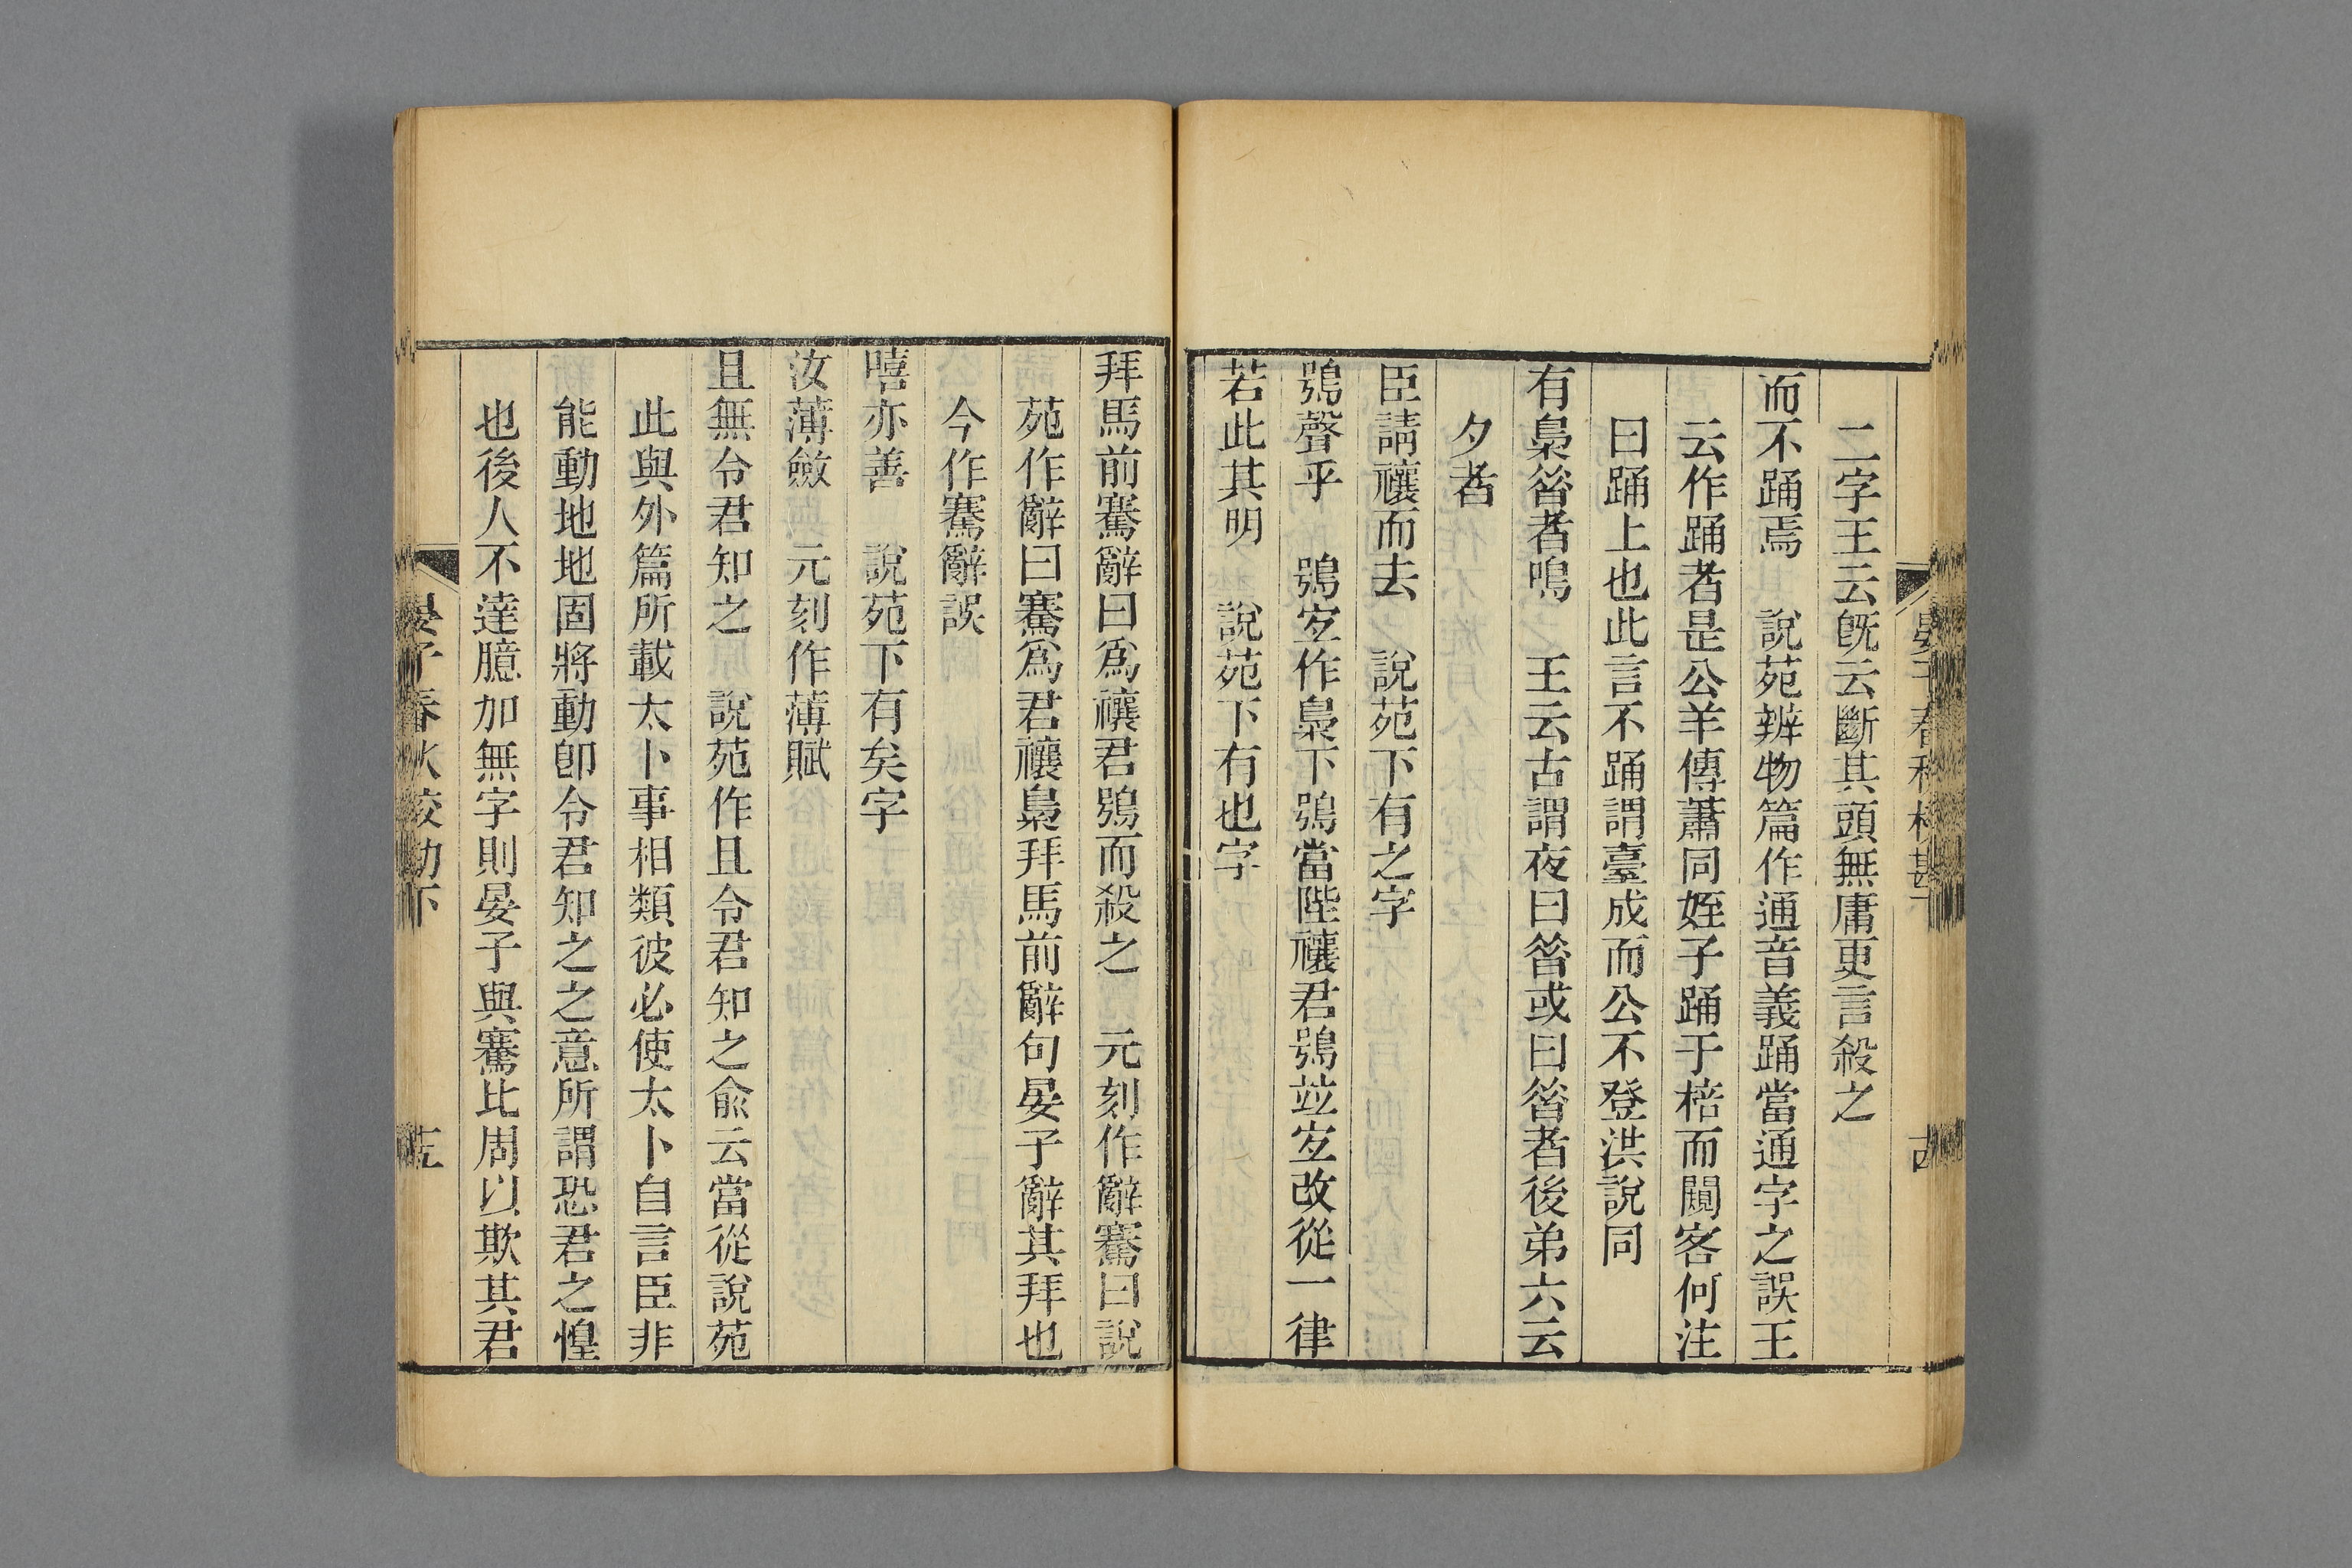 二字王云既云斷其頭無庸更言殺之
而不踊焉　說苑辨物篇作通音義踊當通字之誤王
云作踊者是公羊傳蕭同姪子踊于棓而闚客何注
曰踊上也此言不踊謂臺成而公不登洪說同
有梟昝者鳴　王云古謂夜曰昝或曰昝者後弟六云
夕者
臣請禳而去　說苑下有之字
鴞聲乎　鴞㝎作梟下鴞當陛禳君鴞竝㝎改從一律
若此其明　說苑下有也字
拜馬前騫辭曰爲禳君鴞而殺之　元刻作辭騫曰說
苑作辭曰騫爲君禳梟拜馬前辭句晏子辭其拜也
今作騫辭誤
嘻亦善　說苑下有矣字
汝薄斂　元刻作薄賦
且無令君知之　說苑作且令君知之俞云當從說苑
此與外篇所載太卜事相類彼必使太卜自言臣非
能動地地固將動卽令君知之之意所謂恐君之惶
也後人不達臆加無字則晏子與騫比周以欺其君
晏子春秋校勘下